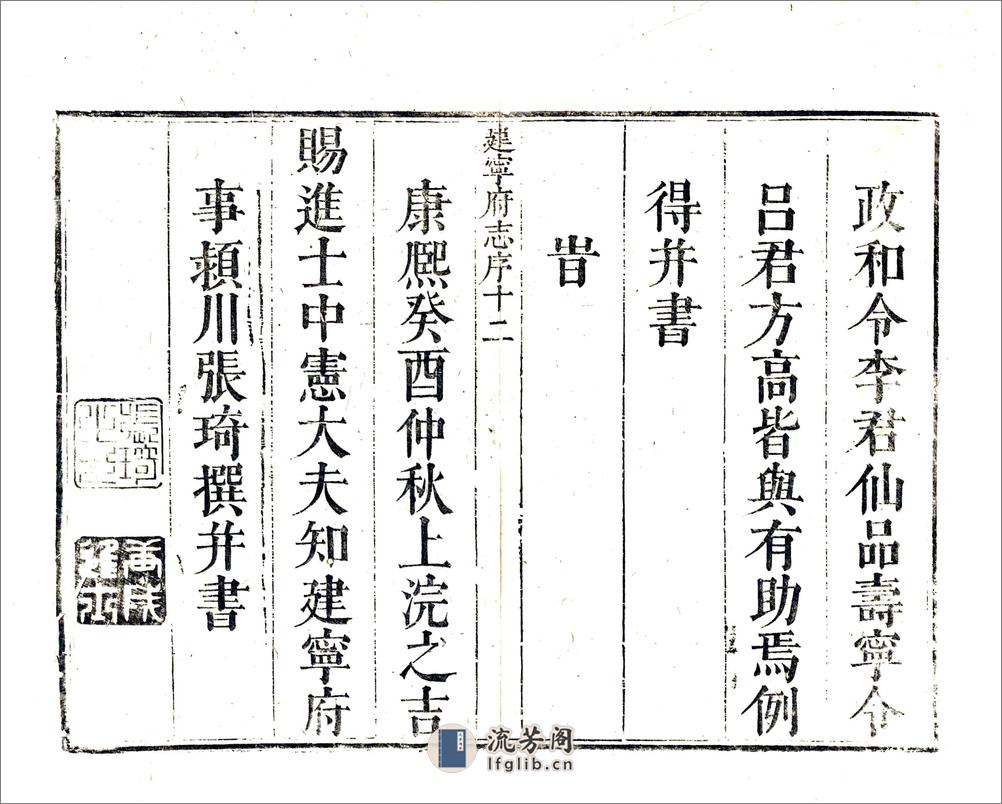 政和令李君仙品壽寧令
呂君方高皆與有助焉例
得并書
旹
建寧府志序十二
康熙癸酉仲秋上浣之吉
賜進士中憲大夫知建寧府
事潁川張琦撰并書
張琦
庚戌進士
流芳阁
lfglib.cn